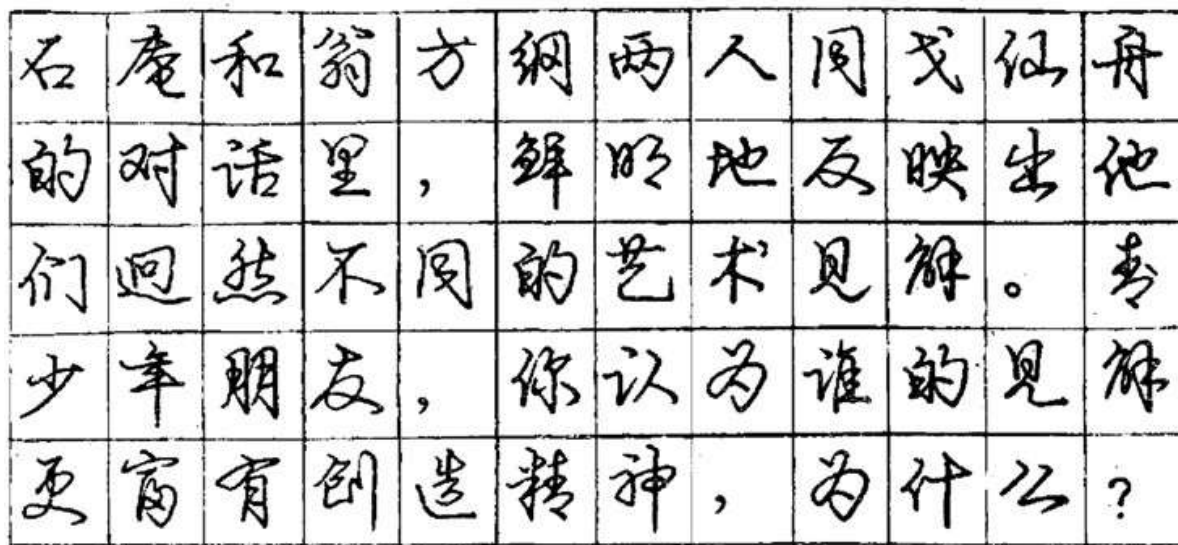 石庵和翁方纲两人同戈仙舟
的对话里，鲜明地反映出他
们迥然不同的艺术见解。青
少年朋友，你认为谁的见解
更富有创造精神，为什么？